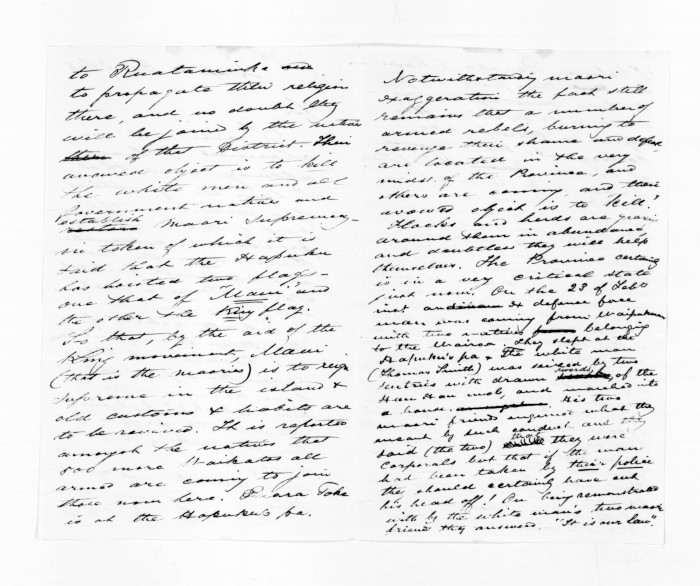 to Ruataniwha
to propagate their religion
there, and no doubt they
will be joined by the natives
them of that District. Their
avowed object is to kill
the white men and all
Government natives and
establish
restore Maori Supremacy -
in token of which it is
said that the Hapuku
has hoisted two flags -
one that of "Maui" and
the other the King flag.
So that, by the aid of the
King movement, Maui
(that is the maories) is to reign
supreme in the island &
old customs & habits are
to be revived. It is reported
amongst the natives that
500 more Waikatos all
armed are coming to join
those now here.
is at the Hapuku's pa.
Notwithstanding maori
exaggeration the fact still
remains that a number of
armed rebels, burning to
revenge their shame and defeat
are located in the very
midst of the Province, and
others are coming, and their
avowed object is to kill!
Flocks and herds are grazing
around them in abundance,
and doubtless they will help
themselves. The Province certainly
is in a very critical state
just now. On the 23 of Feb
inst a defence force
man was coming from Waipukurau
with two natives belonging
to the Wairoa. They slept at the
Hapuku's pa & the white man
(Thomas Smith) was seized by two
sentries with drawn swords, of the
Hau Hau mob, and marched into
a house. His two
maori friends enquired what they
meant by such conduct and they
said (the two) that they were
corporals but that if the man
had been taken by their police
they should certainly have cut
his head off! On being remonstrated
with by the white man's two maori
friends they answered. "It is our law".